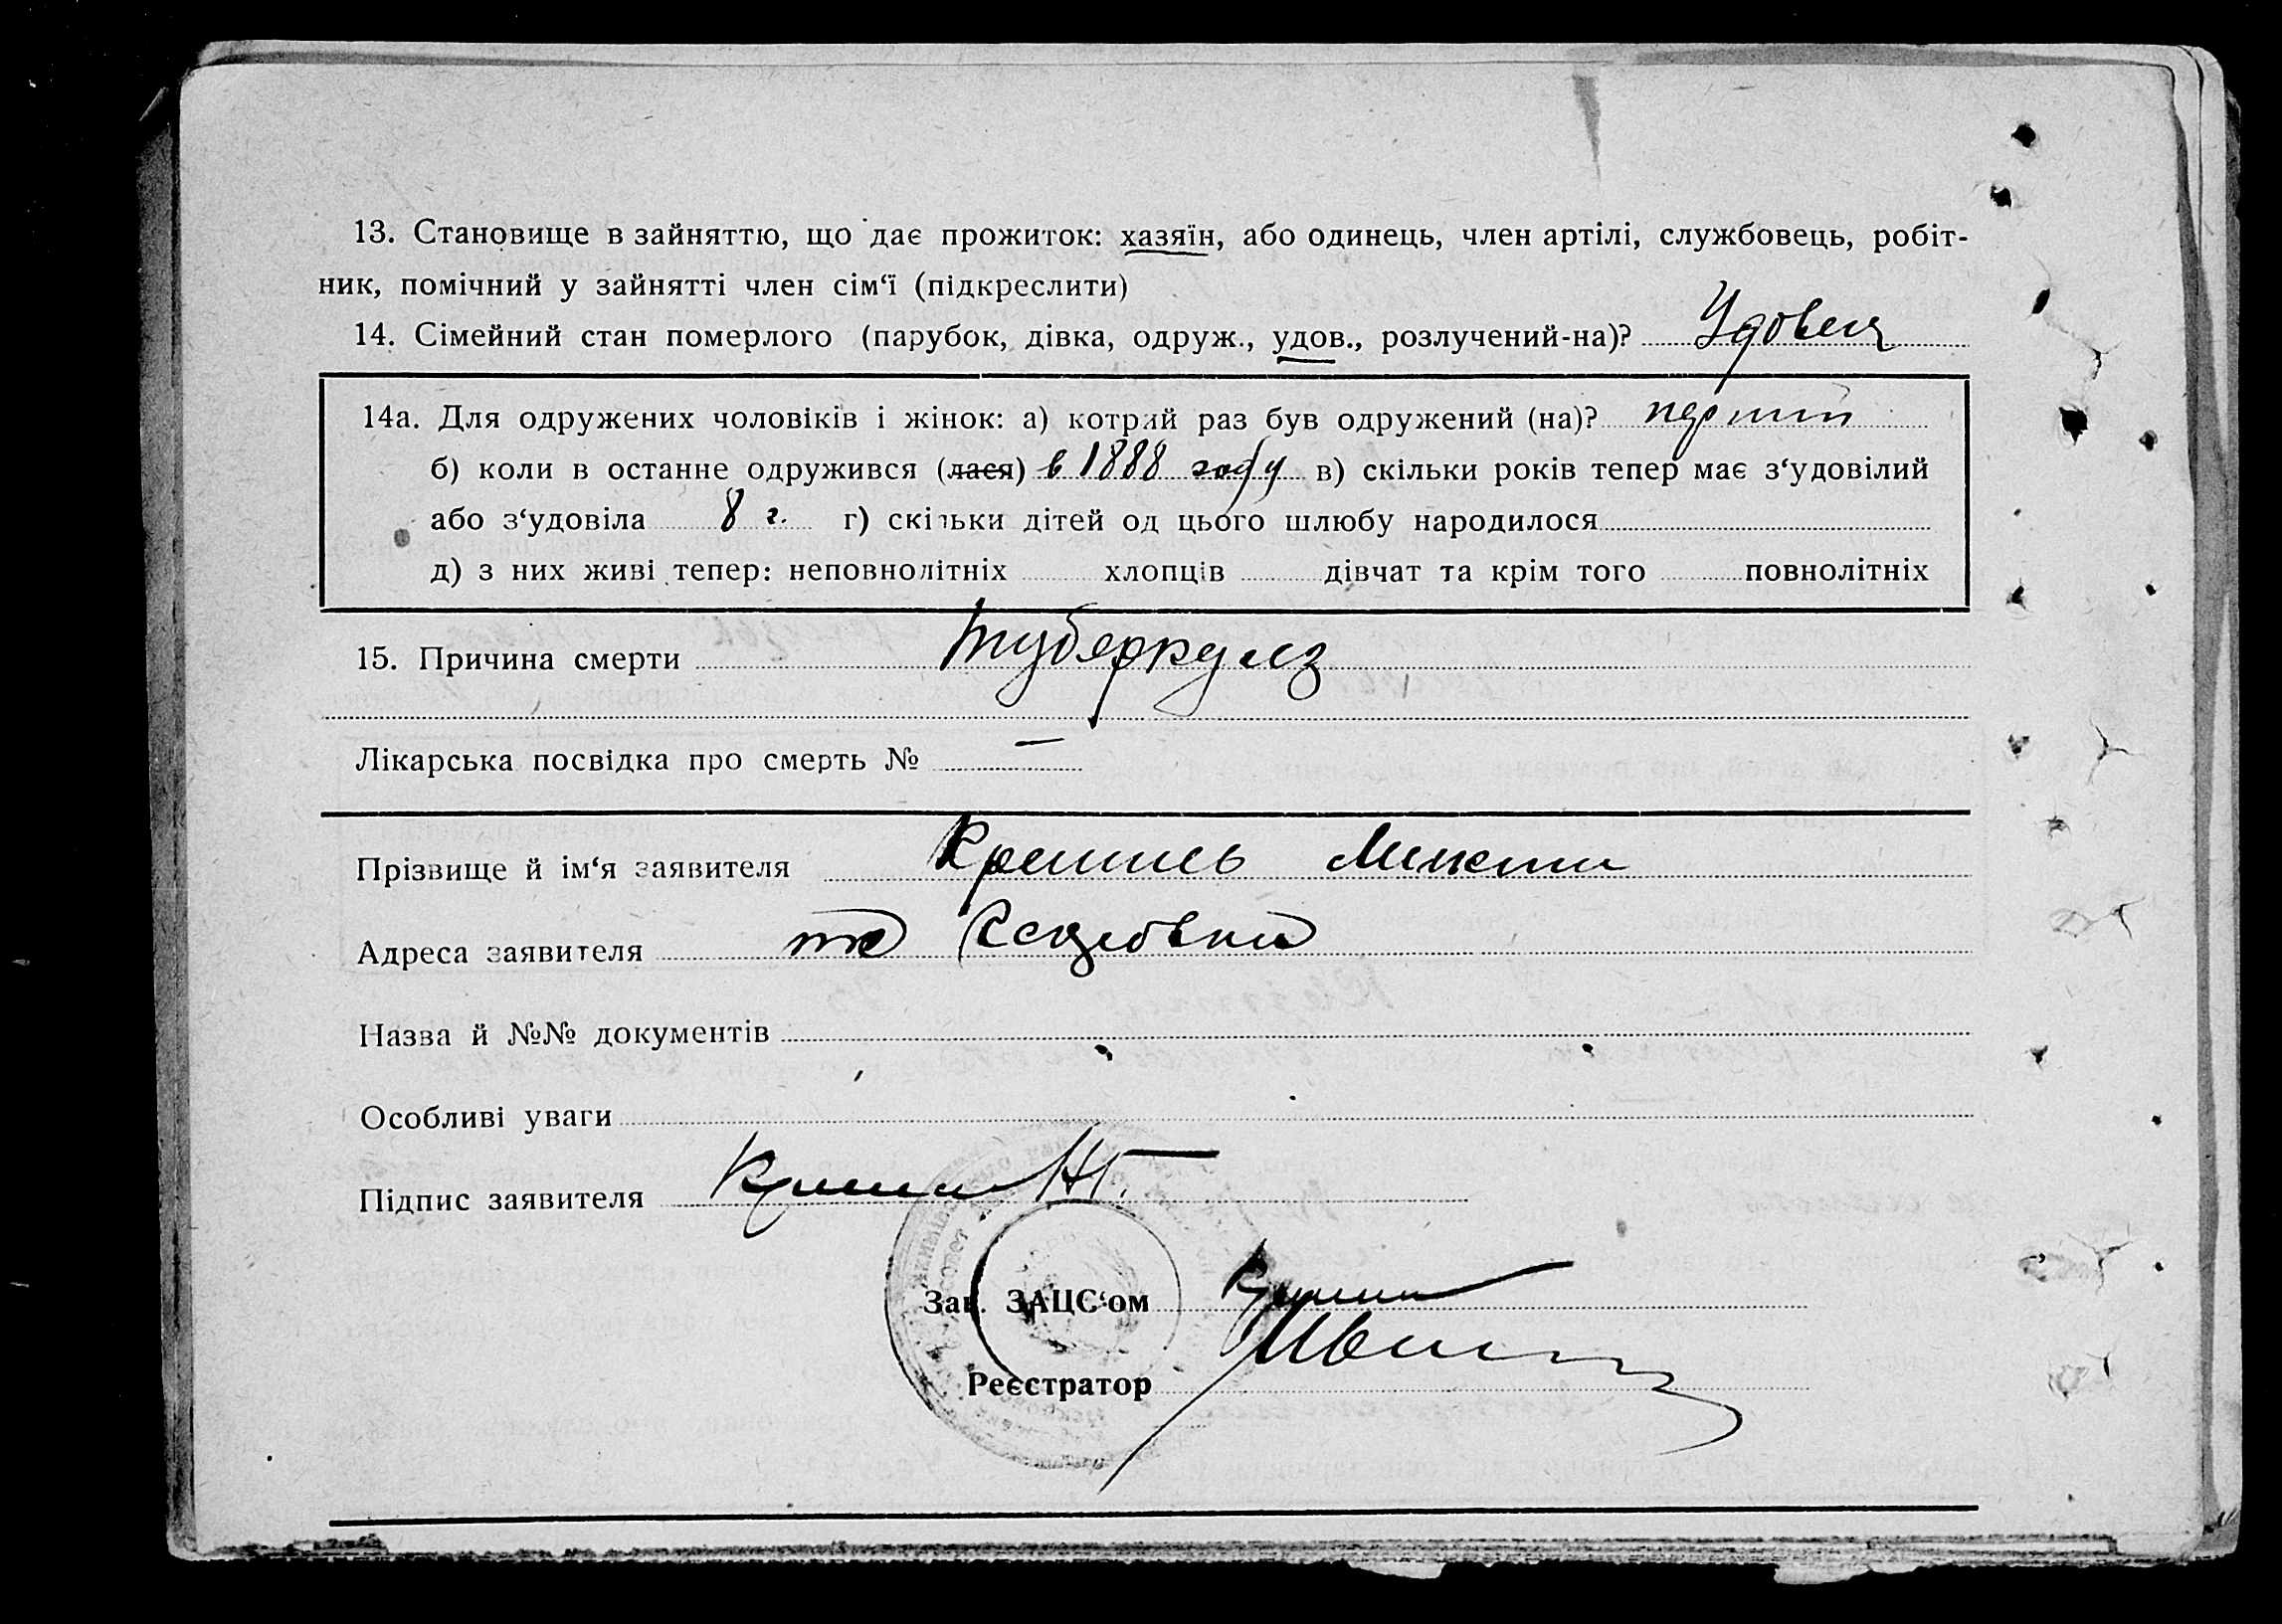 13. Становище в зайняттю, що дає прожиток: хазяїн, або одинець, член артілі, службовець, робіт-
ник, помічний у зайнятті член сім‘ї (підкреслити)
14. Сімейний стан померлого (парубок, дівка, одруж., удов., розлучений-на)? Удовец
14а. Для одружених чоловіків і жінок: а) котрий раз був одружений (на)?
б) коли в останнє одружився (лася) в 1888 году в) скільки років тепер має з‘удовілий
або з‘удовіла 8 г. г) скільки дітей од цього шлюбу народилося
д) з них живі тепер: неповнолітніх хлопців дівчат та крім того повнолітніх
15. Причина смерти туберкулз
Лікарська посвідка про смерть № —
Прізвище й ім‘я заявителя
Адреса заявителя
Назва й №№ документів
Особливі уваги
Підпис заявителя
Зав. ЗАЦС‘ом
Реєстратор